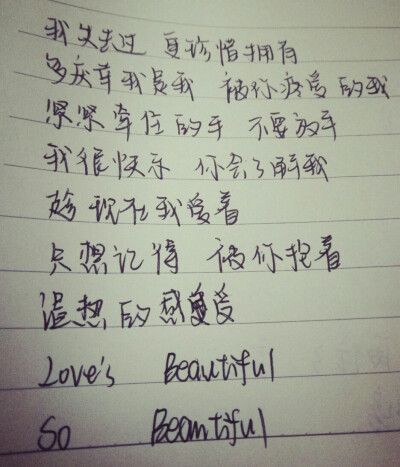 我失去过 更珍惜拥有
多庆幸我是我 被你疼爱的我
紧紧牵住的手 不要放手
我很快乐 你会了解我
趁现在我爱着
只想记得 被你抱着
温热的感受
Love's Beautiful
So Beautiful